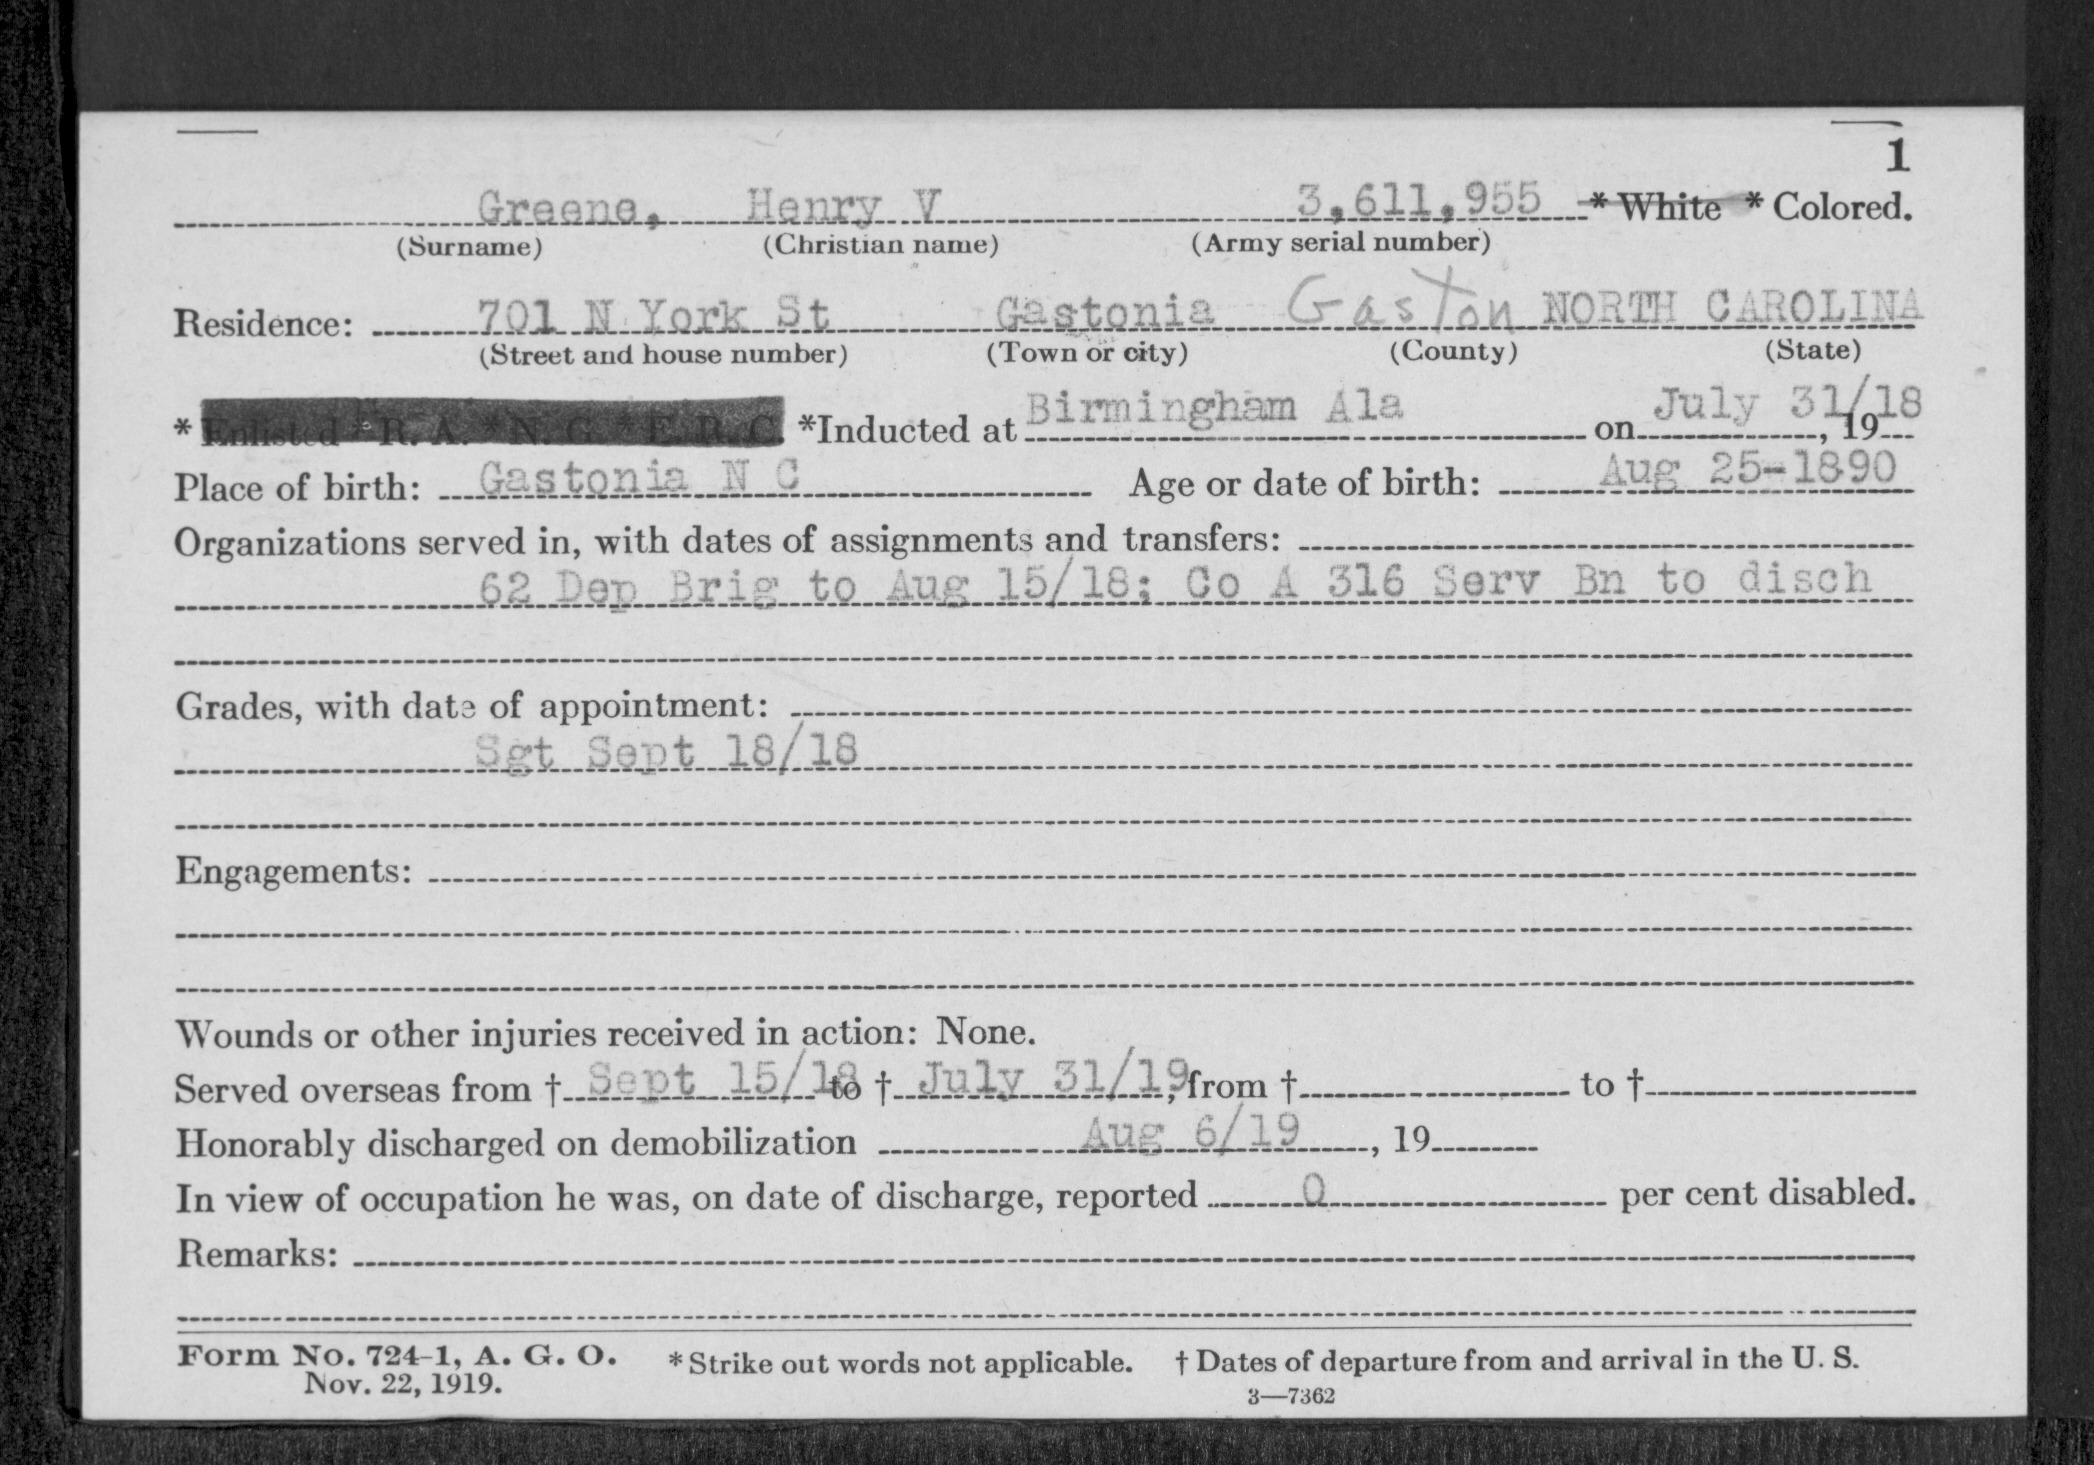 1
Greene, Henry V 3,611,955 * White * Colored.
(Surname) (Christian name) (Army serial number)
Residence: 701 N York St Gastonia Gaston NORTH CAROLINA
(Street and house number) (Town or city) (County) (State)
* Enlisted * R. A. * N. G. * E. R. C. *Inducted at Birmingham Ala on July 31/18, 19
Place of birth: Gastonia N C Age or date of birth: Aug 25-1890
Organizations served in, with dates of assignments and transfers:
62 Dep Brig to Aug 15/18; Co A 316 Serv Bn to disch
Grades, with date of appointment:
Sgt Sept 18/18
Engagements:
Wounds or other injuries received in action: None.
Served overseas from † Sept 15/18 to † July 31/19, from † to †
Honorably discharged on demobilization Aug 6/19, 19
In view of occupation he was, on date of discharge, reported 0 per cent disabled.
Remarks:
Form No. 724-1, A. G. O. * Strike out words not applicable. † Dates of departure from and arrival in the U. S.
Nov. 22, 1919.
3—7362